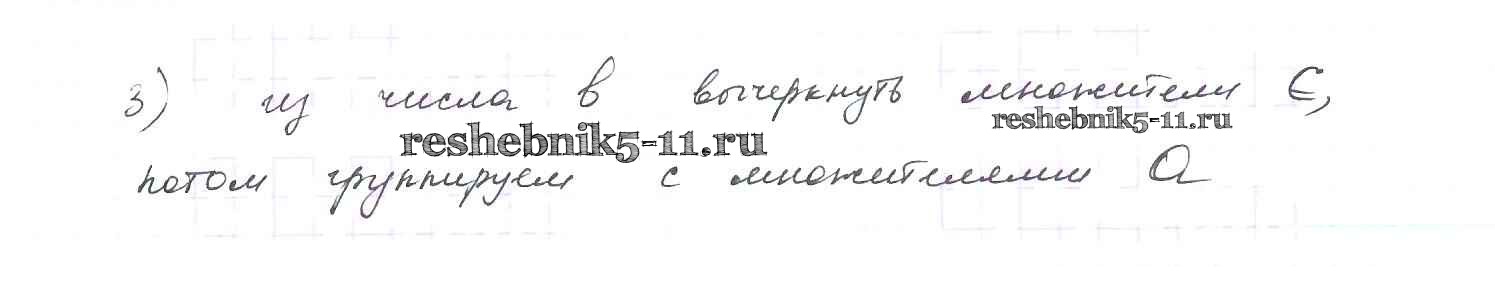 3) из числа в вычеркнуть множители с,
reshebnik5-11.ru reshebnik5-11.ru
потом группируем с множителями а